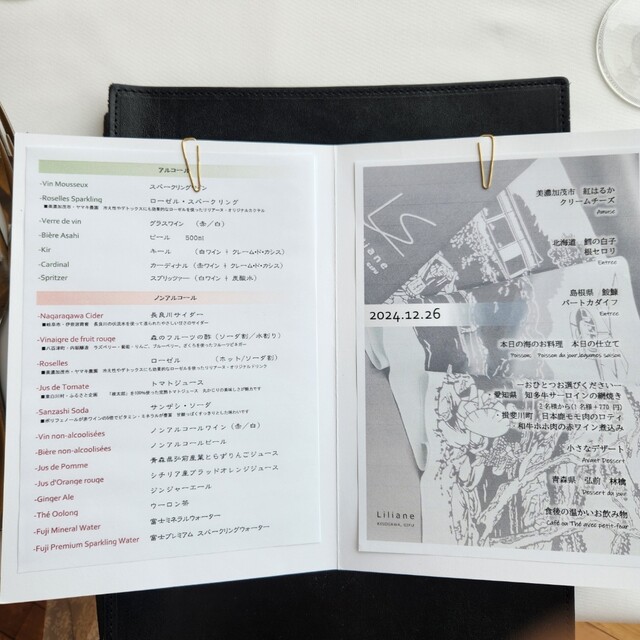 アルコール
-Vin Mousseux スパークリングワイン
-Roselles Sparkling ローゼル・スパークリング
-Verre de vin グラスワイン (赤/白)
-Bière Asahi ビール 500ml
-Kir キール (白ワイン+クレーム・ド・カシス)
-Cardinal カーディナル (赤ワイン+クレーム・ド・カシス)
-Spritzer スプリッツァー (白ワイン+炭酸水)
ノンアルコール
-Nagaragawa Cider 長良川サイダー
-Vinaigre de fruit rouge 森のフルーツの酢 (ソーダ割/水割り)
-Roselles ローゼル (ホット/ソーダ割)
-Jus de Tomate トマトジュース
-Sanzashi Soda サンザシ・ソーダ
-Vin non-alcoolisées ノンアルコールワイン (赤/白)
-Bière non-alcoolisées ノンアルコールビール
-Jus de Pomme 青森県弘前産葉とらずりんごジュース
-Jus d'Orange rouge シチリア産ブラッドオレンジジュース
-Ginger Ale ジンジャーエール
-Thé Oolong ウーロン茶
-Fuji Mineral Water 富士ミネラルウォーター
-Fuji Premium Sparkling Water 富士プレミアム スパークリングウォーター
美濃加茂市 紅はるか
クリームチーズ
Amuse
北海道 鱈の白子
根セロリ
Entrée
島根県 鮟鱇
パートカダイフ
Entrée
2024.12.26
本日の海のお料理 本日の仕立て
Poisson Poisson du jour,legumes saison
―おひとつお選びください―
愛知県 知多牛サーロインの網焼き
(2名様から(1名様+770円)
揖斐川町 日本鹿モモ肉のロティ
和牛ホホ肉の赤ワイン煮込み
小さなデザート
Avant Dessert
青森県 弘前 林檎
Dessert du jour
食後の温かいお飲み物
Café ou Thé avec petit-four
Liliane
KISOGAWA, GIFU